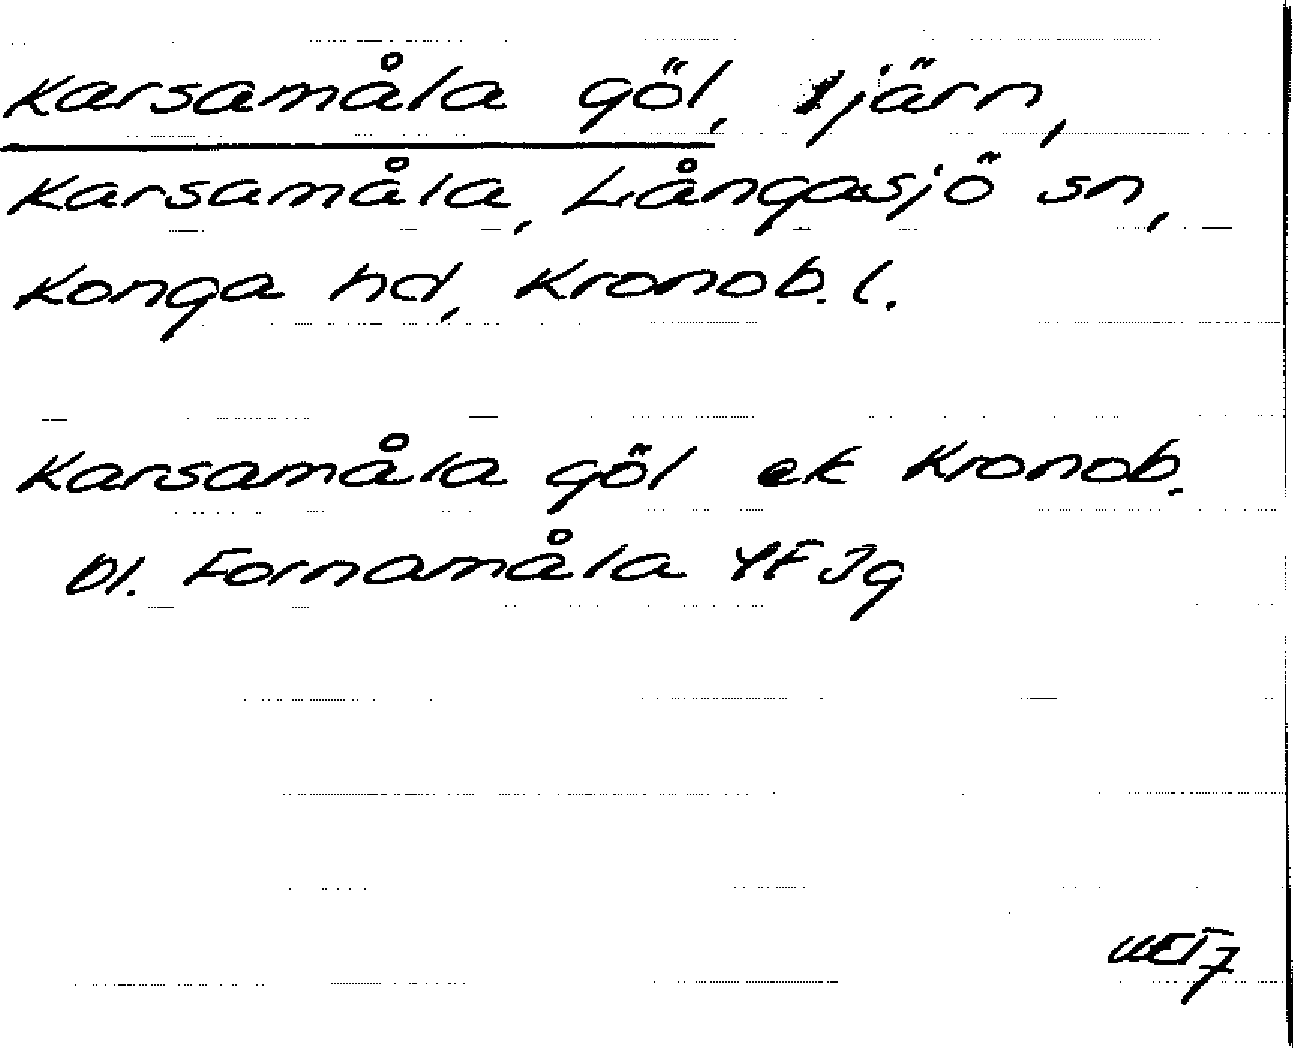 Karsamåla göl, tjärn,
Karsamåla, Långasjö sn,
Konga hd, Kronob. l.
Karsamåla göl ek Kronob.
bl. Fornamåla 4F Jg